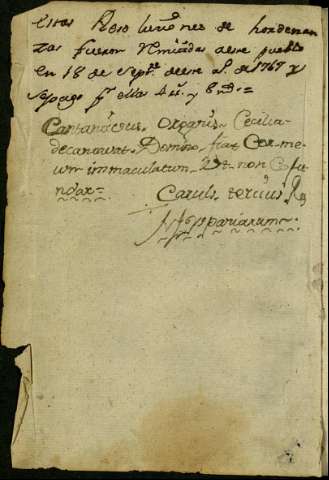 Estas Resoluciones de hordenan
zas fueron Remitidas a este pueblo
en 18 de Septe. de este a. de 1767 y
se pago pr. ellas 4 rs. y
Cantantibus Organis Cecilia
decantavat Domino fiat Cor me
um immaculatum Ut non Cofu
ndar =
Caruls. tercius Rex
Hisppaniarum